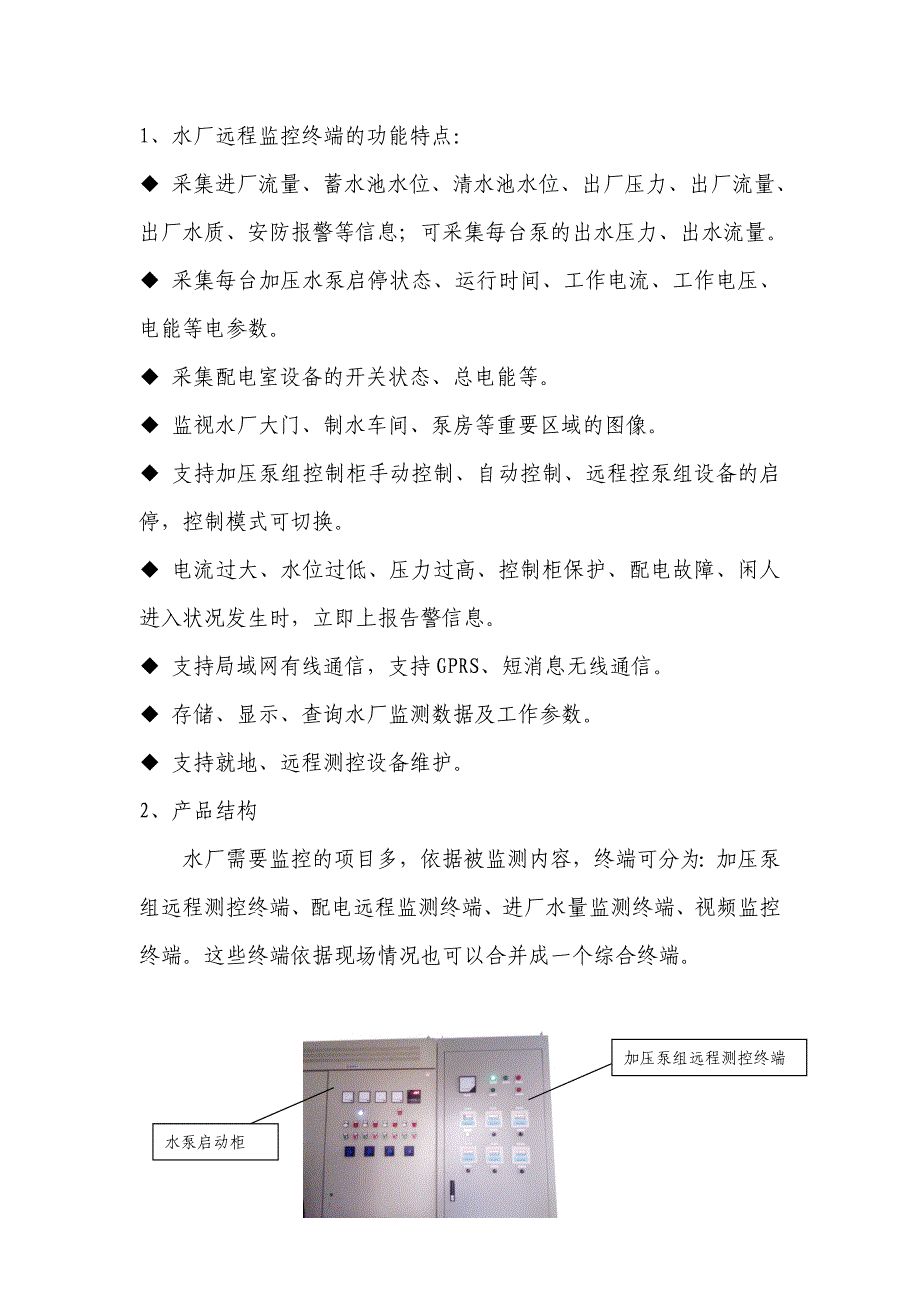 1、水厂远程监控终端的功能特点：
◆ 采集进厂流量、蓄水池水位、清水池水位、出厂压力、出厂流量、
出厂水质、安防报警等信息；可采集每台泵的出水压力、出水流量。
◆ 采集每台加压水泵启停状态、运行时间、工作电流、工作电压、
电能等电参数。
◆ 采集配电室设备的开关状态、总电能等。
◆ 监视水厂大门、制水车间、泵房等重要区域的图像。
◆ 支持加压泵组控制柜手动控制、自动控制、远程控泵组设备的启
停，控制模式可切换。
◆ 电流过大、水位过低、压力过高、控制柜保护、配电故障、闲人
进入状况发生时，立即上报告警信息。
◆ 支持局域网有线通信，支持 GPRS、短消息无线通信。
◆ 存储、显示、查询水厂监测数据及工作参数。
◆ 支持就地、远程测控设备维护。
2、产品结构
水厂需要监控的项目多，依据被监测内容，终端可分为：加压泵
组远程测控终端、配电远程监测终端、进厂水量监测终端、视频监控
终端。这些终端依据现场情况也可以合并成一个综合终端。
加压泵组远程测控终端
水泵启动柜